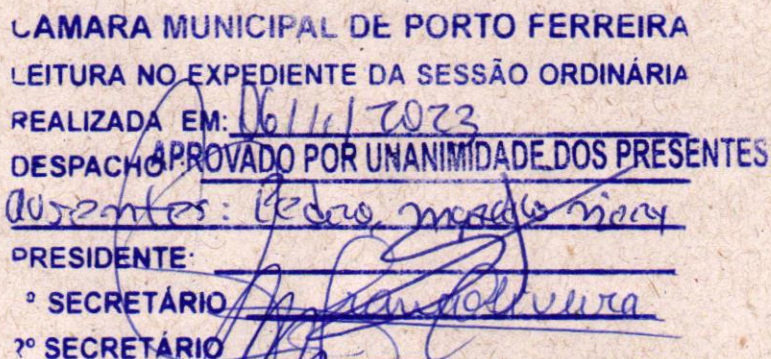 CAMARA MUNICIPAL DE PORTO FERREIRA
LEITURA NO EXPEDIENTE DA SESSÃO ORDINÁRIA
REALIZADA EM: 06/11/2023
DESPACHO APROVADO POR UNANIMIDADE DOS PRESENTES
ausentes: Pedro,
PRESIDENTE:
º SECRETÁRIO
2º SECRETÁRIO